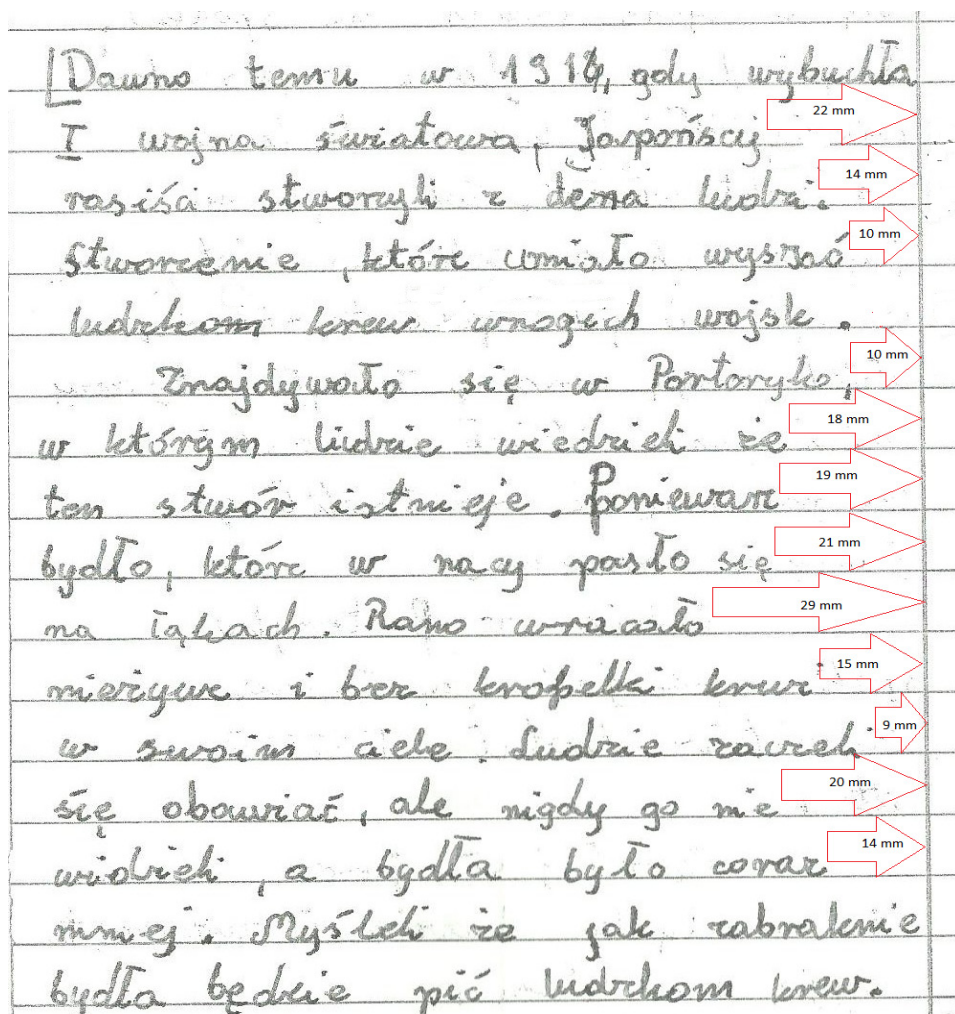 Dawno temu w 1914, gdy wybuchła
I wojna światowa, Japońscij 22 mm
rasiśći stworzyli z dema ludzi. 14 mm
stworzenie, które umiało wyssać 10 mm
ludzkom krew wrogich wojsk.
Znajdywało się w Portoryko, 10 mm
w którym ludzie wiedzieli że 18 mm
ten stwór istnieje. Ponieważ 19 mm
bydło, które w nocy pasło się 21 mm
na łąkach. Rano wracało 29 mm
nieżywe i bez kropelki krwi 15 mm
w swoim ciele. Ludzie zaczeli 9 mm
się obawiać, ale nigdy go nie 20 mm
widzieli, a bydła było coraz 14 mm
mniej. Myśleli że jak zabraknie
bydła będzie pić ludzkom krew.